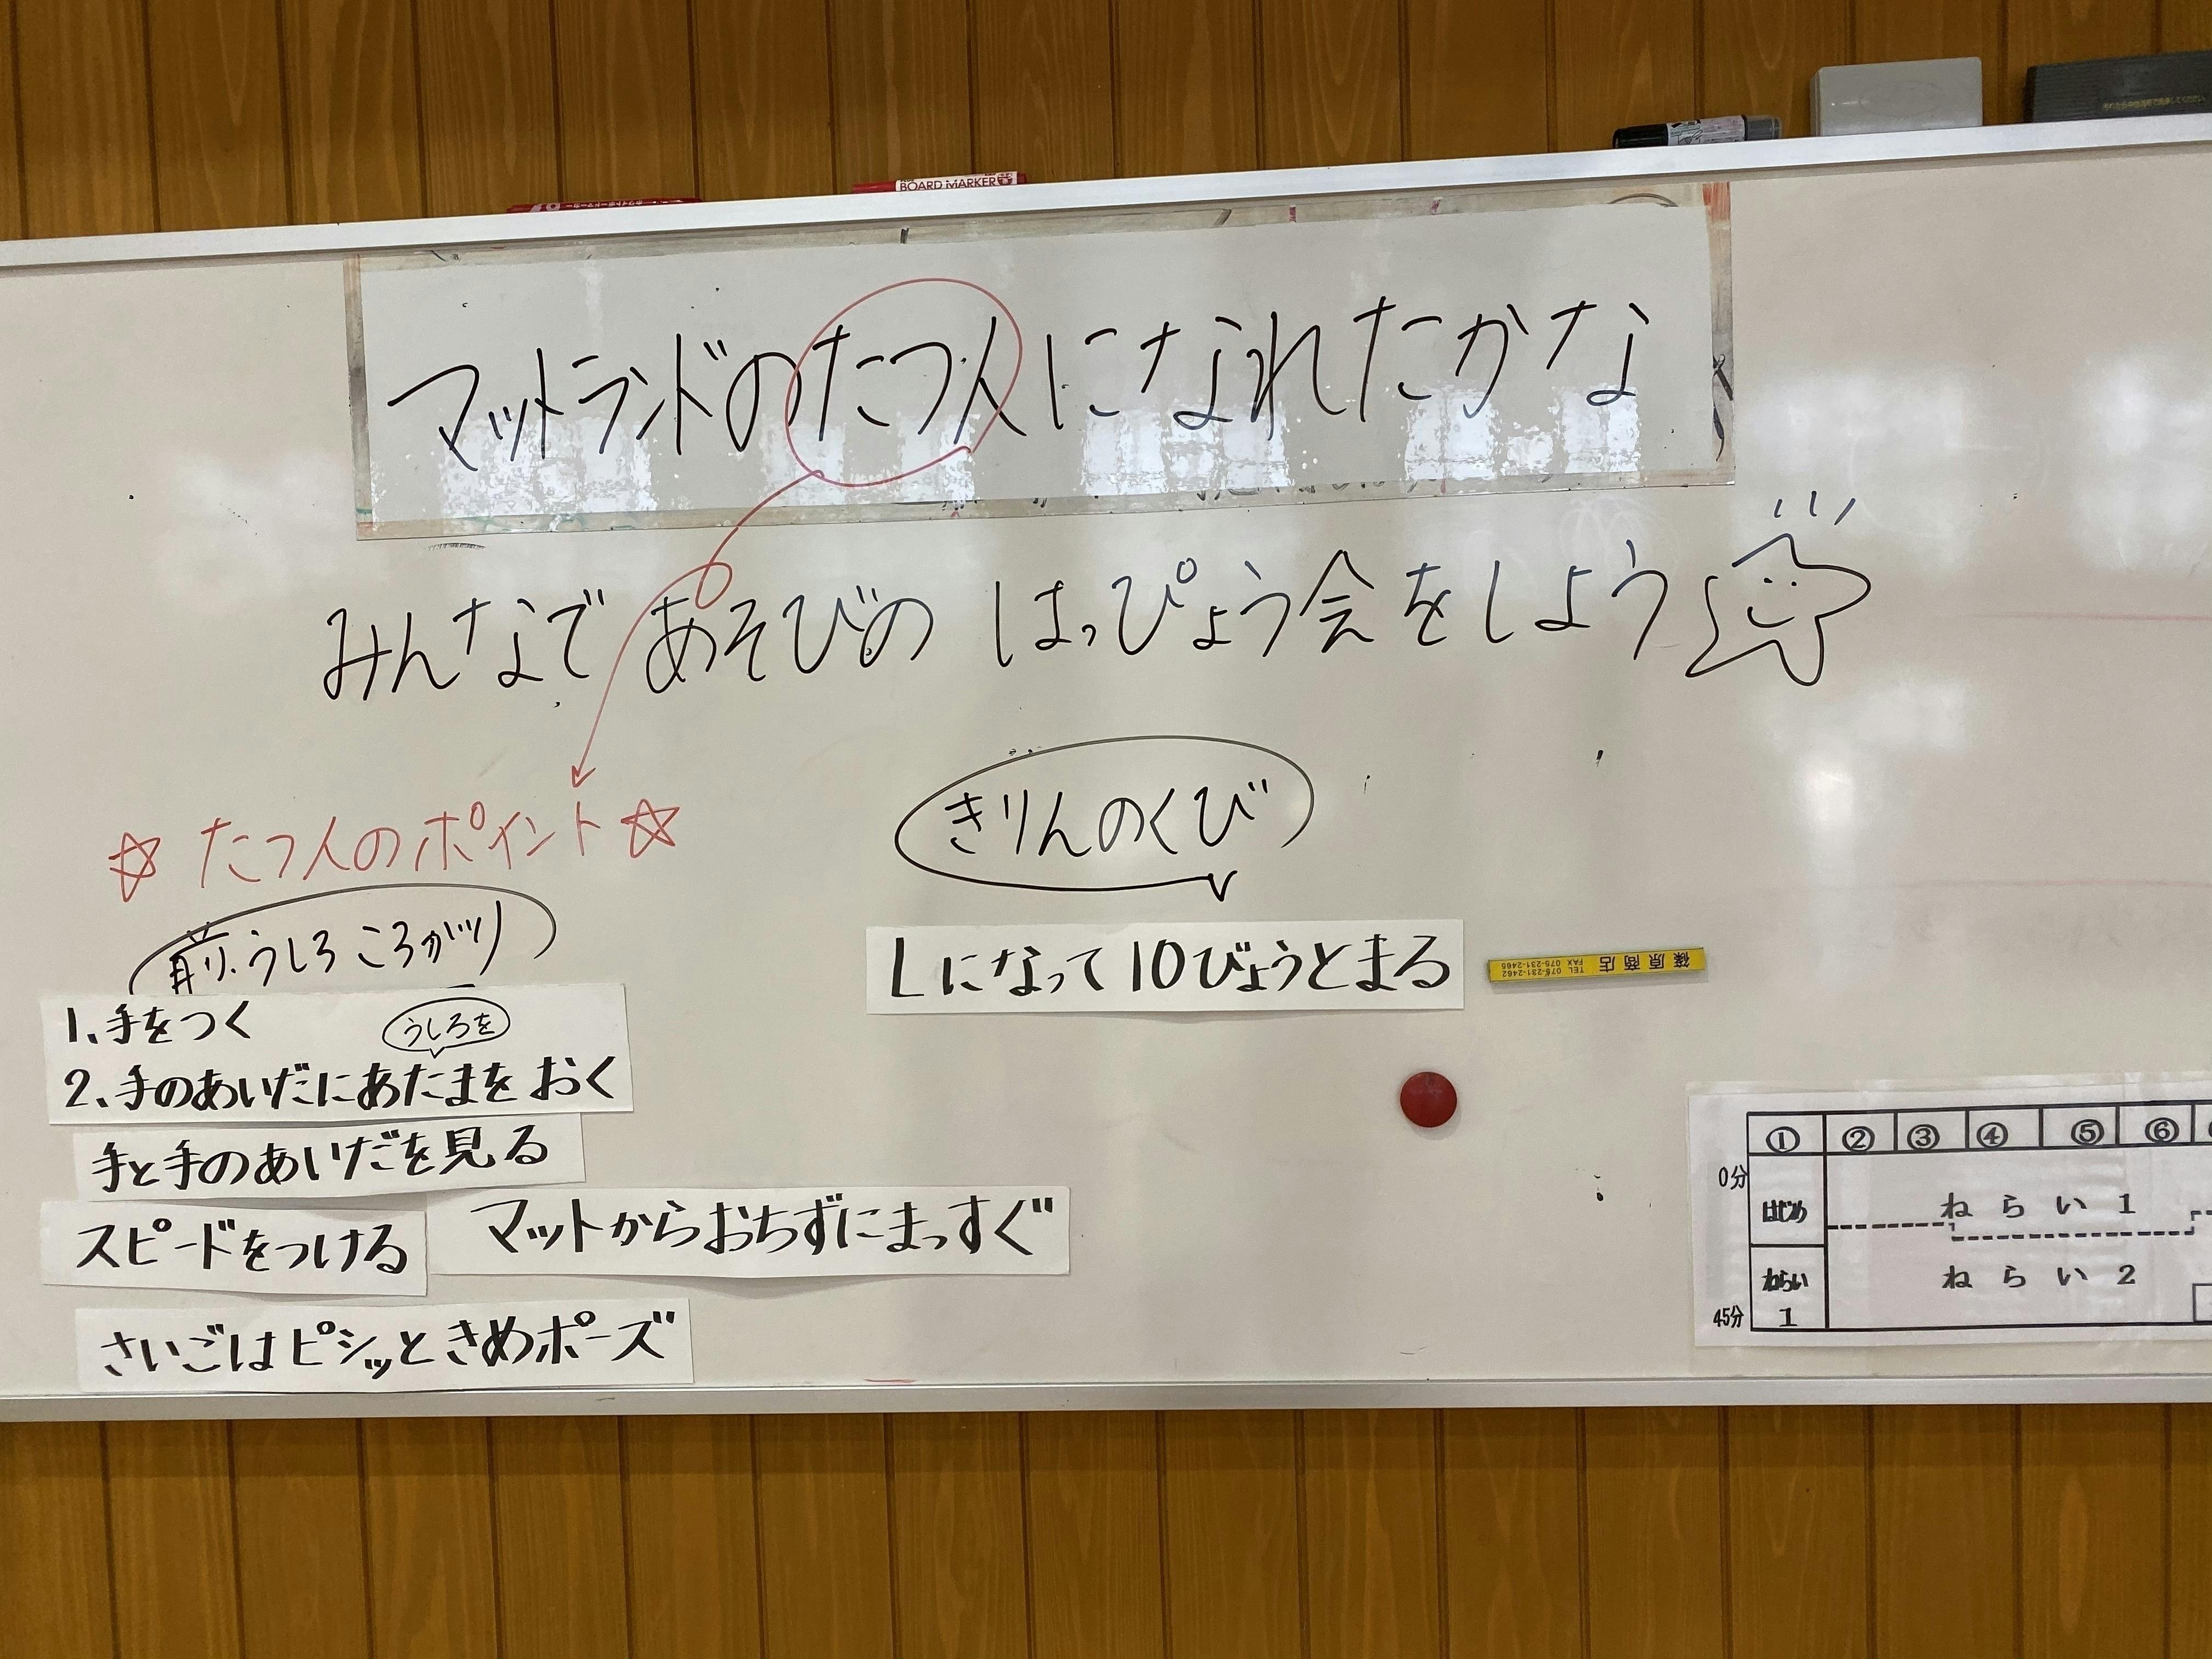 BOARD MARKER
マットランドのたつ人になれたかな
みんなであそびの はっぴょう会をしよう
☆ たつ人のポイント ☆
前・うしろ ころがり
1、手をつく
うしろを
2、手のあいだにあたまを おく
手と手のあいだを見る
スピードをつける
マットからおちずにまっすぐ
さいごはピシッときめポーズ
きりんのくび
Lになって10びょうとまる
篠原商店
TEL 075-231-2462
FAX 075-231-2465
① ② ③ ④ ⑤ ⑥
0分
はじめ
ねらい1
ねらい2
ねらい
1
45分